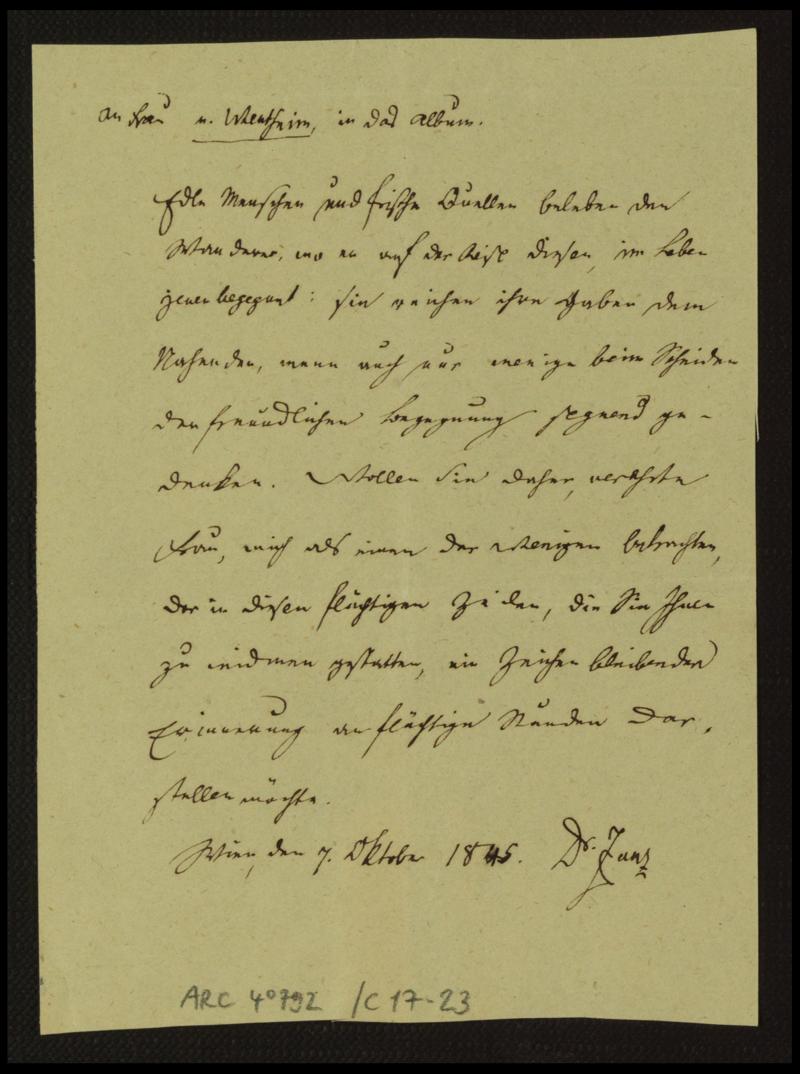 An Frau v. Wertheim, in das Album.
Edle Menschen und frische Quellen beleben den
Wanderer, wo er auf der Reise diesen, im Leben
jenen begegnet: sie reichen ihre Gaben dem
Nahenden, wenn auch nur wenige beim Scheiden
der freundlichen Begegnung segnend ge-
denken. Wollen Sie daher, verehrte
Frau, mich als einen der Wenigen betrachten,
der in diesen flüchtigen Zeilen, die Sie Ihnen
zu widmen gestatten, ein Zeichen bleibender
Erinnerung an flüchtige Stunden dar-
stellen möchte.
Wien, den 7. Oktober 1845. Dr. Zunz
ARC 4° 792 /C 17-23